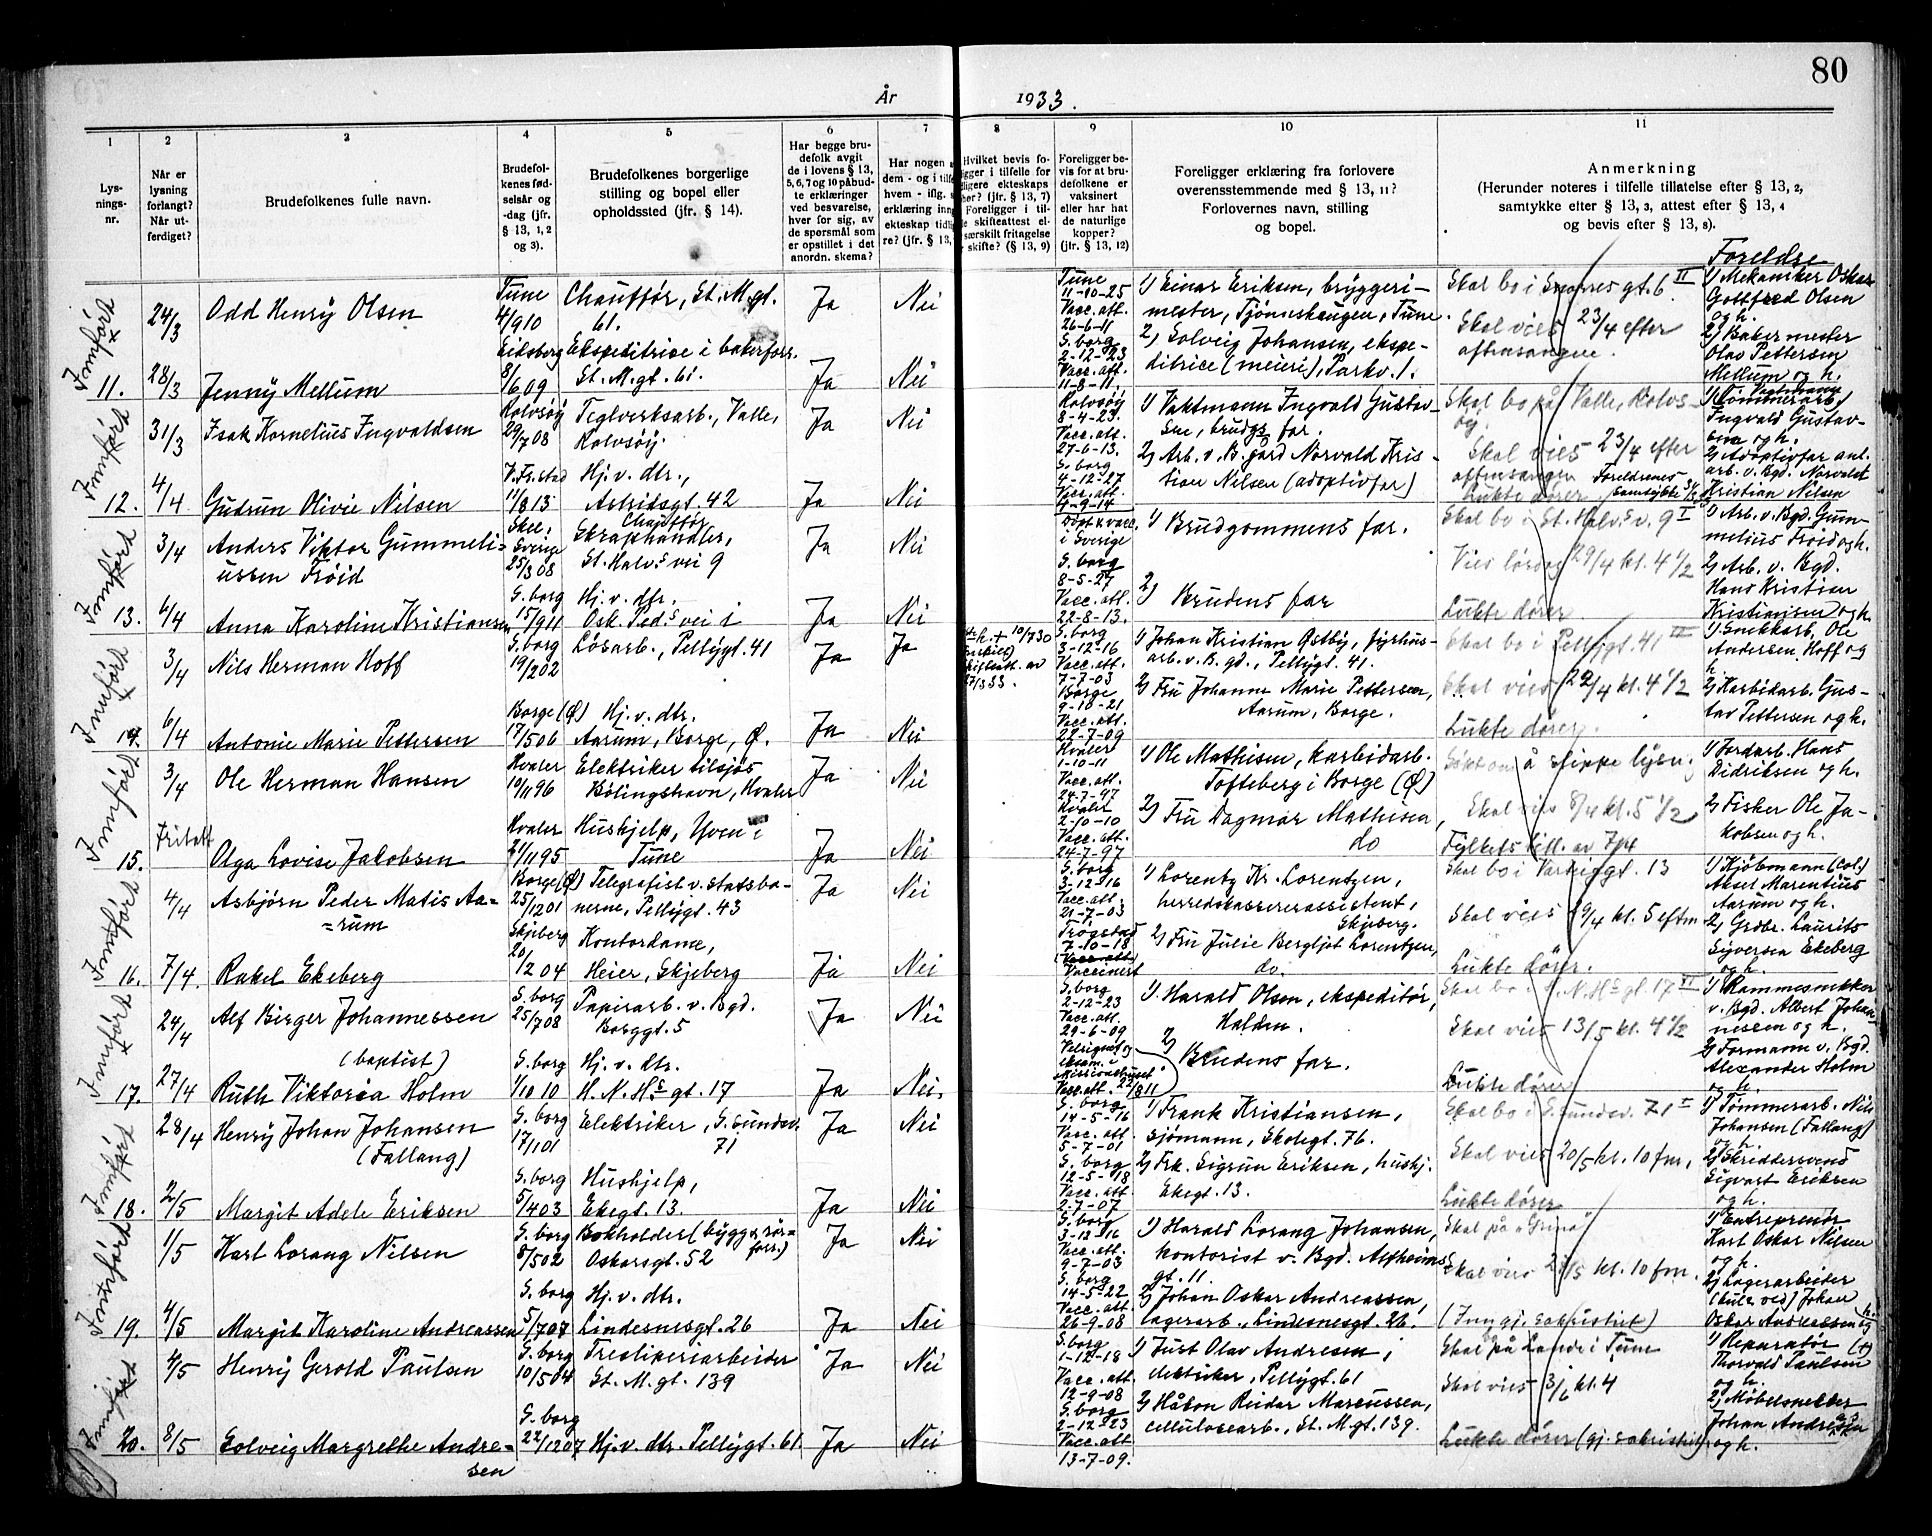 80
År 1933.
1
Lys-
nings-
nr.
2
Når er
lysning
forlangt?
Når ut-
ferdiget?
3
Brudefolkenes fulle navn.
4
Brudefol-
kenes fød-
selsår og
-dag (jfr.
§ 13, 1, 2
og 3).
5
Brudefolkenes borgerlige
stilling og bopel eller
opholdssted (jfr. § 14).
6
Har begge bru-
defolk avgit
de i lovens § 13,
5, 6, 7 og 10 påbud-
te erklæringer
ved besvarelse,
hver for sig, av
de spørsmål som
er opstillet i det
anordn. skema?
7
Har nogen a
dem - og i tilfe
hvem - iflg. s
erklæring inng
ekteskap tidlig
re? (jfr. § 13,
8
Hvilket bevis fo-
ligger i tilfelle for
ligere ekteskaps
er? (jfr. § 13, 7)
Foreligger i til-
e skifteattest el.
særskilt fritagelse
skifte? (§ 13, 9)
9
Foreligger be-
vis for at bru-
defolkene er
vaksinert
eller har hat
de naturlige
kopper?
(jfr. § 13, 12)
10
Foreligger erklæring fra forlovere
overensstemmende med § 13, 11?
Forlovernes navn, stilling
og bopel.
11
Anmerkning
(Herunder noteres i tilfelle tillatelse efter § 13, 2,
samtykke efter § 13, 3, attest efter § 13, 4
og bevis efter § 13, 8).
Foreldre
Innført
11.
24/3
Odd Henry Olsen
Tune
4/910
Chauffør, St. M. gt.
61.
Ja
Nei
Tune
11-10-25
Vacc. att.
26-6-11
1) Einar Eriksen, bryggeri-
mester, Tjønnehaugen, Tune.
Skal vies 23/4 efter
aftensangen.
1) Mekaniker Oskar
Gottfred Olsen
og h.
28/3
Jenny Mellum
Eidsberg
8/6 09
Ekspeditrise i bakerforr.
St. M. gt. 61.
Ja
Nei
S. borg
2-12-23
Vacc. att.
11-8-11.
2) Solveig Johansen, ekspe-
ditrice (meieri), Parkv. 1.
2) Bakermester
Olav Pettersen
Mellum og h.
Innført
12.
31/3
Isak Kornelius Ingvaldsen
Rolvsøy
29/7 08
Teglverksarb., Valle,
Rolvsøy.
Ja
Nei
Rolvsøy
8-4-23.
Vacc. att.
27-6-13.
1) Vaktmann Ingvald Gustav-
sen, brudgs far.
Skal bo på Valle, Rolvs-
øy.
Skal vies 23/4 efter
aftensangen
Ingvald Gustav-
sen og h.
4/4
Gudrun Olivie Nilsen
V. Fr.stad
11/8 13
Hj. v. dtr.,
Astridsgt. 42
Ja
Nei
S. borg
4-12-27
Vacc. att.
4-9-14
2) Arb. v. B. gård Norvald Kris-
tian Nilsen (adoptivfar)
Lukte dører
Foreldrenes
samtykke
2) Adoptivfar anl.
arb. v. Bgd. Norvald
Kristian Nilsen
Innført
13.
3/4
Anders Viktor Gummeli-
ussen Frøid
Skee,
Sverige
25/3 08
Chauffør
Skraphandler,
St. Halv.s vei 9
Ja
Nei
Døpt & vacc.
i Sverige
1) Brudgommens far.
Skal bo i St. Halv.s v. 9 I
Vies lørdag 29/4 kl. 4 1/2
1) Arb. v. Bgd. Gum-
melius Frøid og h.
4/4
Anna Karoline Kristiansen
S. borg
15/911
Hj. v. dtr.
Osk. Ped.s vei 1
Ja
Nei
S. borg
8-5-27
Vacc. att.
22-8-13.
2) Brudens far
Lukte dører
2) Arb. v. Bgd.
Hans Kristian
Kristiansen og h.
Innført
14.
3/4
Nils Herman Hoff
S. borg
19/202
Løsarb., Pellygt. 41
Ja
Ja
S. borg
3-12-16
Vacc. att.
7-7-03
1) Johan Kristian Østby, fyrhus-
arb. v. B. gd., Pellygt. 41.
Skal bo i Pellygt. 41 III
Skal vies 22/4 kl. 4 1/2
1) Snekkarb. Ole
Andersen Hoff og
h.
6/4
Antonie Marie Pettersen
Borge (Ø)
17/506
Hj. v. dtr.
Aarum, Borge, Ø.
Ja
Nei
Borge
9-10-21
Vacc. att.
22-7-09
2) Fru Johanne Marie Pettersen,
Aarum, Borge.
Lukte dører.
2) Karbidarb. Gus-
tav Pettersen og h.
Innført
15.
3/4
Ole Herman Hansen
Hvaler
10/11 96
Elektriker tilsjøs
Bølingshavn, Hvaler
Ja
Nei
Hvaler
1-10-11
Vacc. att.
24-7-97
1) Ole Mathisen, karbidarb.
Tofteberg i Borge (Ø)
Søkt om å slippe lysn.
Skal vies 8/4 kl. 5 1/2
1) Jordarb. Hans
Didriksen og h.
Fritatt
Olga Lovise Jakobsen
Hvaler
21/11 95
Hushjelp, Yven i
Tune
Ja
Nei
Hvaler
2-10-10
Vacc. att.
24-7-97
2) Fru Dagmar Mathisen,
do
Fylkets till. av 7/4
2) Fisker Ole Ja-
kobsen og h.
Innført
16.
4/4
Asbjørn Peder Matis Aa-
=rum
Borge (Ø)
25/12 01
Telegrafist v. statsba-
nerne, Pellygt. 43
Ja
Nei
S. borg
3-12-16
Vacc. att.
21-7-03
1) Lorentz Kr. Lorentzen,
herredskassererassistent,
Skjeberg.
Skal vies 29/4 kl. 5 eftm
1) Kjøbmann (Col.)
Aksel Marentius
Aarum og h.
7/4.
Rakel Ekeberg
Skjeberg
20/12 04
Kontordame,
Heier, Skjeberg
Ja
Nei
Trøgstad
7-10-18
Vaccinert
2) Fru Julie Bergljot Lorentzen,
do.
Lukte dører.
2) Grdbr. Laurits
Syversen Ekeberg
og h.
Innført
17.
24/4
Alf Birger Johannessen
(baptist)
S. borg
25/7 08
Papirarb. v. Bgd.
Borggt. 5
Ja
Nei
S. borg
2-12-23
Vacc. att.
29-6-09
1) Harald Olsen, ekspeditør,
Halden.
Skal vies 13/5 kl. 4 1/2
1) Rammesnikker
v. Bgd. Albert Johan-
nessen og h.
27/4
Ruth Viktoria Holm
S. borg
1/10 10
Hj. v. dtr.
H. N. H.s gt. 17
Ja
Nei.
Vacc. att. 22/8 11
2) Brudens far.
Lukte dører
2) Formann v. Bgd.
Alexander Holm
og h.
Innført
18.
28/4
Henry Johan Johansen
(Fallang)
S. borg
17/101
Elektriker, S. Sundev.
71
Ja
Nei
S. borg
14-5-16
Vacc. att.
5-7-01
1) Frank Kristiansen,
sjømann, Skolegt. 76.
Skal bo i S. Sundev. 71 I
Skal vies 20/5 kl. 10 fm.
1) Tømmerarb. Nils
Johansen (Fallang)
og h.
2/5
Margit Adele Eriksen
S. borg
5/403
Hushjelp,
Ekegt. 13.
Ja
Nei
S. borg
12-5-18
Vacc. att.
2-7-07
2) Frk. Sigrun Eriksen, hushj.
Ekegt. 13.
Lukte dører
2) Skreddersvend
Sigvart Eriksen
og h.
Innført
19.
1/5
Kart Lorang Nilsen
S. borg
8/502
Bokholder (bygg & rør-
forr.)
Oskarsgt. 52
Ja
Nei
S. borg
3-12-16
Vacc. att.
9-7-03
1) Harald Lorang Johansen,
kontorist v. Bgd. Alfheims-
gt. 11.
Skal på "Grina"
Skal vies 21/5 kl. 10 fm.
1) Entreprenør
Kart Oskar Nilsen
og h.
4/5
Margit Karoline Andreassen
S. borg
5/707
Hj. v. dtr.
Lindesnesgt. 26
Ja
Nei
S. borg
14-5-22
Vacc. att.
26-9-08
2) Johan Oskar Andreassen,
lagerarb., Lindesnesgt. 26.
2) Lagerarbeider
Johan
Oskar Andreassen og h.
Innført
20.
4/5
Henry Gerold Paulsen
S. borg
10/504
Tresliperiarbeider
St. M. gt. 139
Ja
Nei
S. borg
1-12-18
Vacc. att.
12-9-08
1) Just Olav Andresen,
elektriker, Pellygt. 61
Skal på Lande i Tune
Skal vies 3/6 kl. 4
1) Reparatør (†)
Thorvald Paulsen
og h.
8/5
Solveig Margrethe Andre-
sen
S. borg
22/12 07
Hj. v. dtr. Pellygt. 61
Ja
Nei
S. borg
2-12-23
Vacc. att
13-7-09.
2) Håkon Reidar Marcussen,
cellulosearb., St. M. gt. 139.
Lukte dører (gj. sakristiet)
2) Møbelsnekker
Johan Andresen
og h.